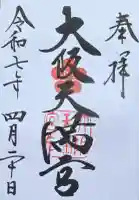 奉拝
大阪天満宮
令和七年
四月二十日